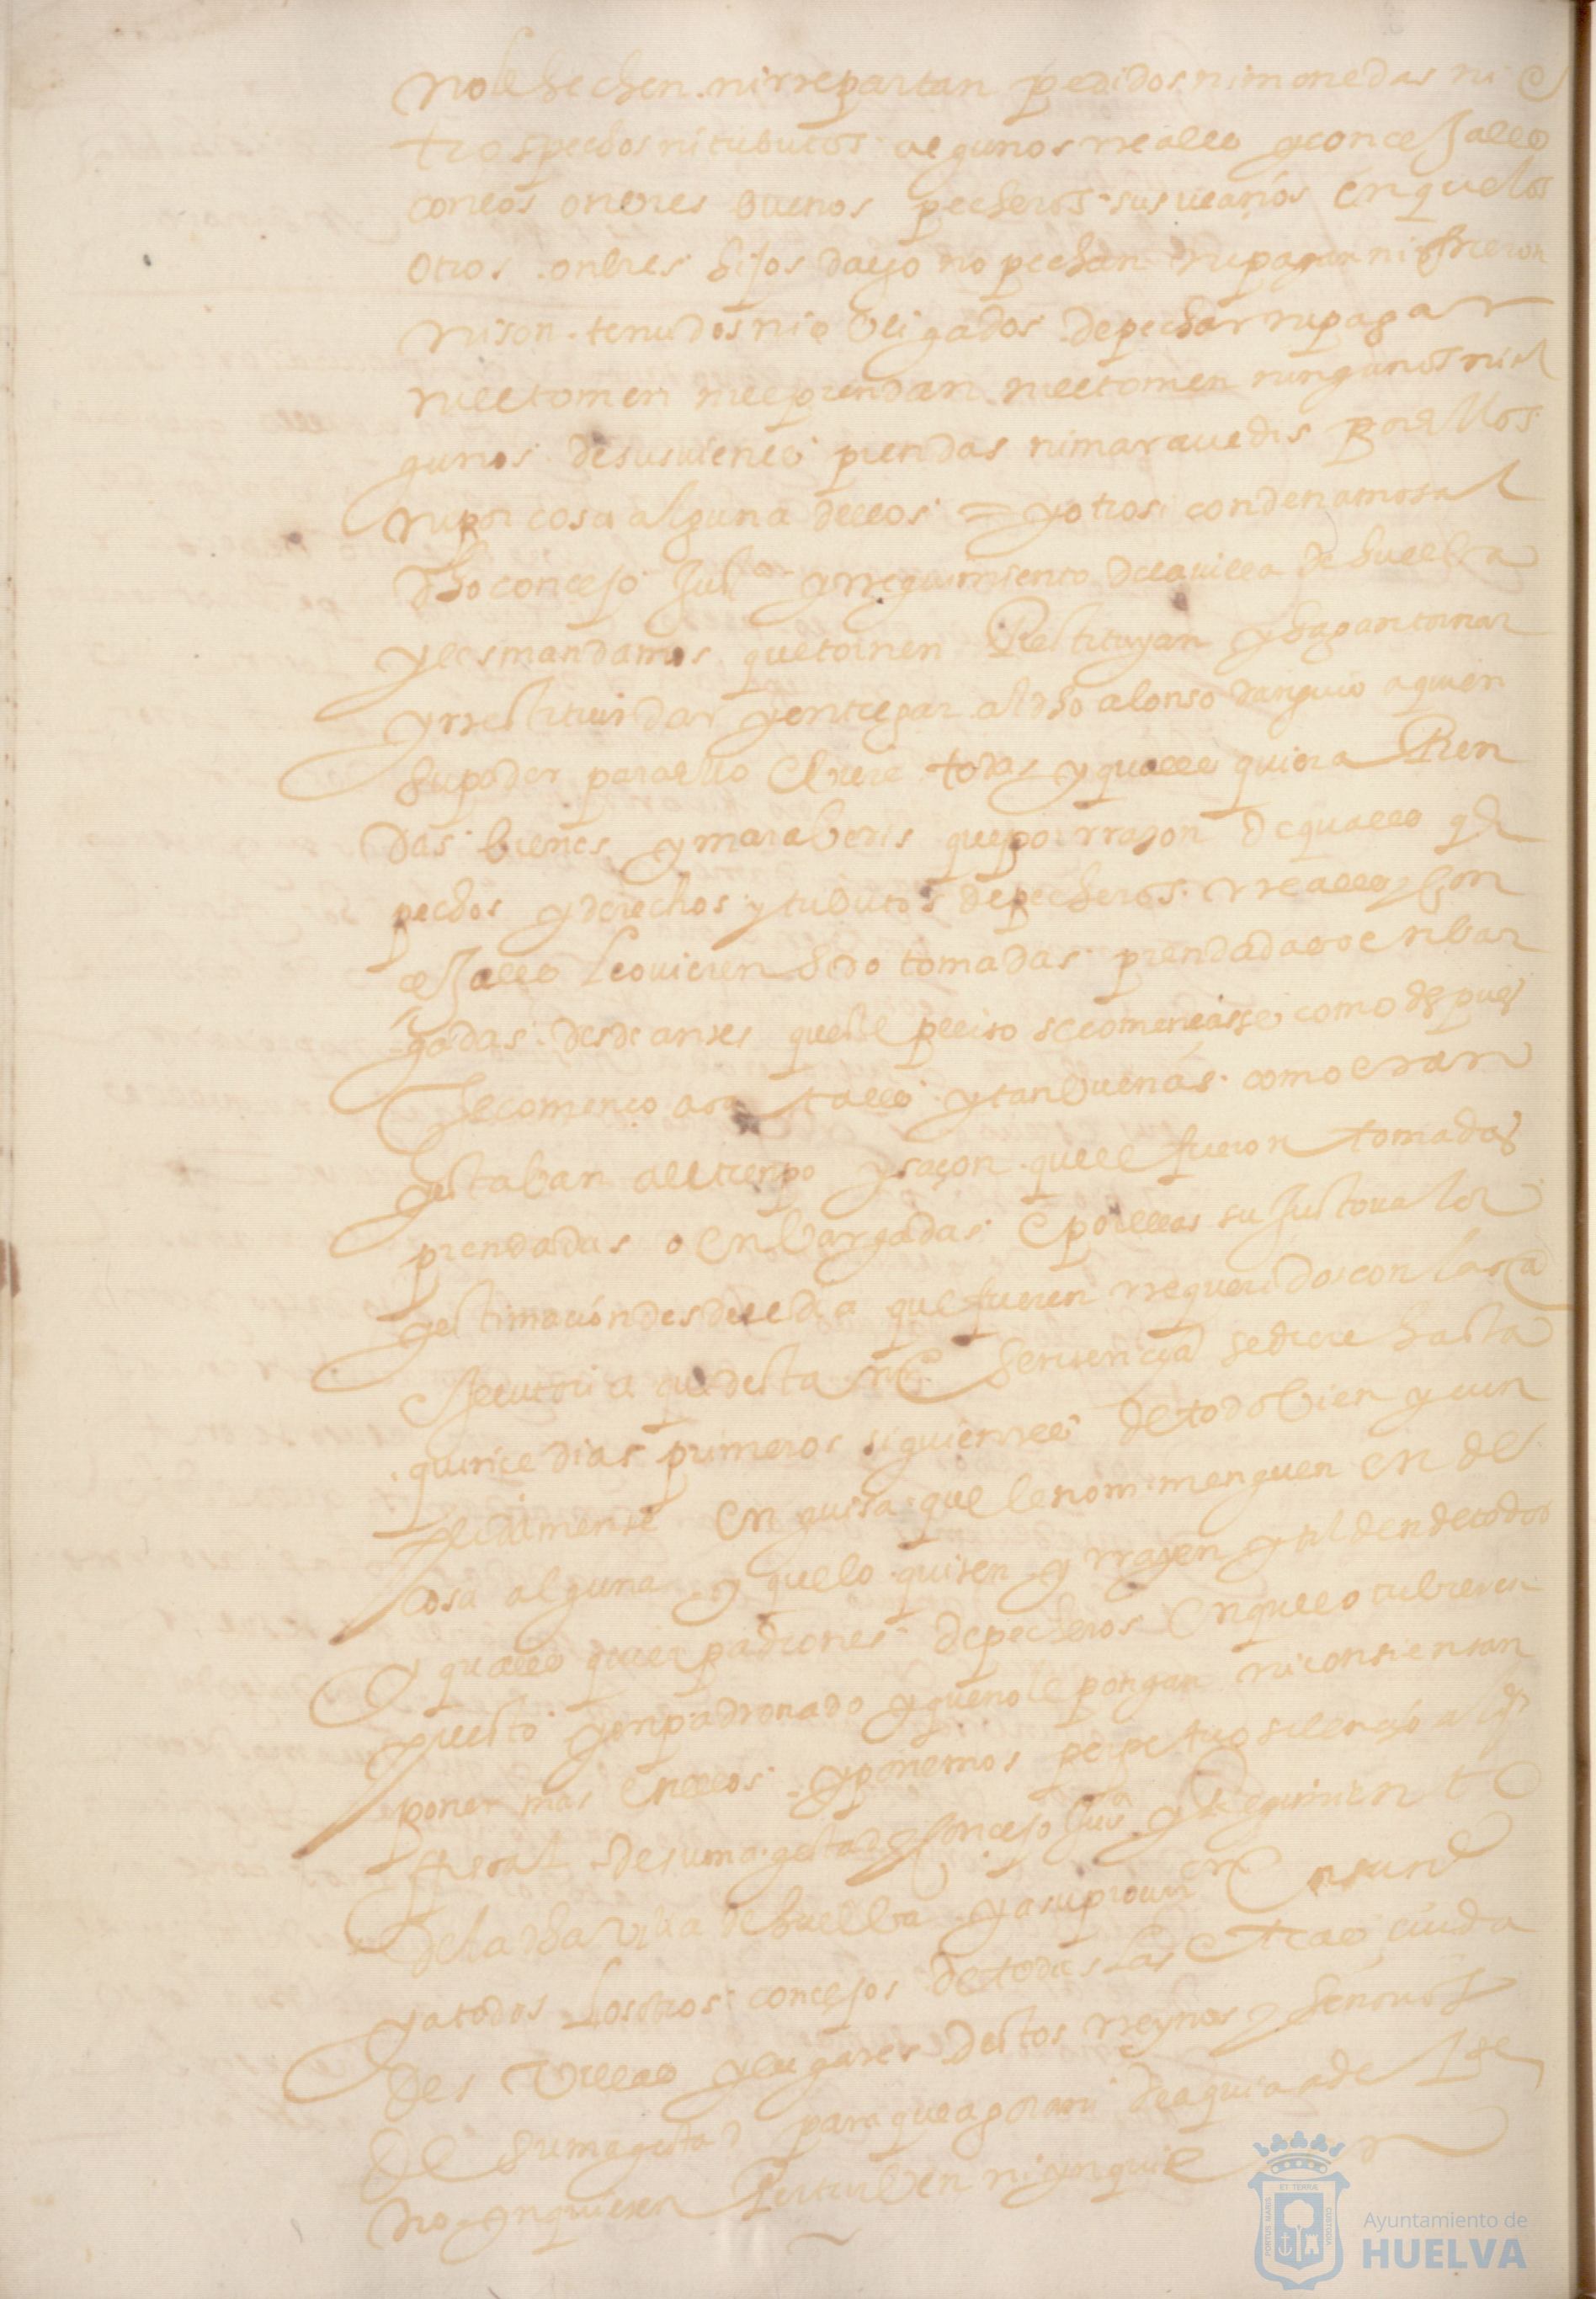 no le hechen ni rrepartan pedidos ni monedas ni o
tros pechos ni tributos algunos rreales y concejales
con los onbres buenos pecheros sus vecinos en que los
otros onbres hijos dalgo no pechan ni pagan ni
ni son tenudos ni obligados de pechar ni pagar
ni le tomen ni le prendan ni le tomen ningunos nin
gunos de sus vienes prendas ni maravedis por ellos
ni por cosa alguna dellos = y otrosi condenamos al
dho concejo Jusª y rregimiento de la villa de huelba
y les mandamos que tornen Restituyan y hagan tornar
y rrestituir dar y entregar al dho alonso danguio a quien
su poder para ello obiere todas y quales quiera Pren
das bienes y maraberis que por rraçon de quales qr
pechos y derechos y tributos de pecheros rreales y con
cejales le ovieren sido tomadas prendadas o enbar
gadas desde antes queste pleito se començasse como despues
se començo a tales y tan buenas como eran
y estaban al tienpo y saçon que le fueron tomadas
prendadas o enbargadas e por ellas su justo valor
y estimacion desde el dia que fueren rrequeridos con la ca
executoria que desta nrª sentencia se diere hasta
quince dias primeros siguientes de todo bien y cun
plidamente en guisa que le non menguen en de
cosa alguna y que lo quiten y rrayen y tilden de todos
y quales quier padrones de pecheros en que lo tubieren
puesto y enpadronado y que no le pongan ni consientan
poner mas en ellos y ponemos perpetuo silencio al dho
fiscal de su magestad concejo Jusª y Regimiento
de la dha villa de huelba y a su procur en su nre
y a todos los otros concejos de todas las otras ciuda
des villas y lugares destos rreynos y señorios
de su magestad para que agora ni de aqui adelante
no ynquieten Perturben ni ynquie
ET TERRA
PORTUS MARIS
CUSTODIA
Ayuntamiento de
HUELVA